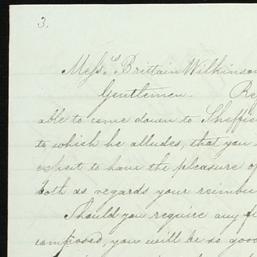 3.
Messrs Brittain Wilkinson
Gentlemen. Re
able to come down to Sheffie
to which he alludes, that you
expect to have the pleasure of
both as regards your reimbu
Should you require any fu
composed, you will be so good